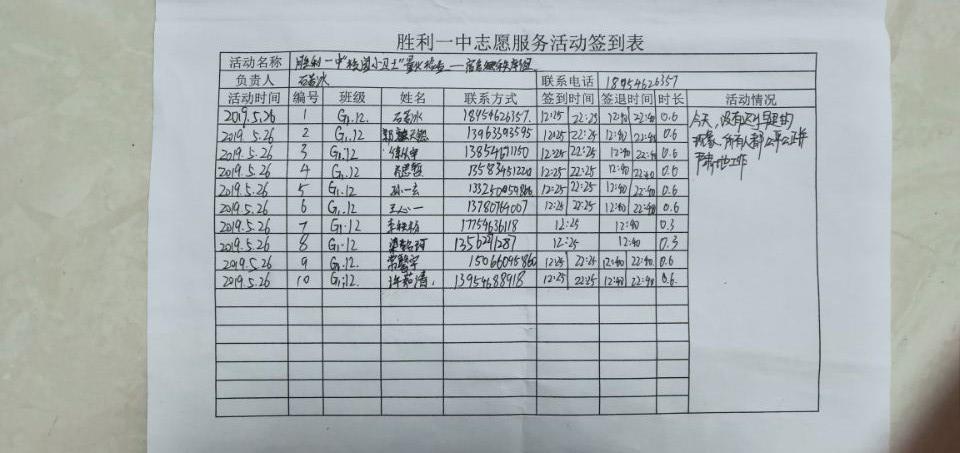 胜利一中志愿服务活动签到表
活动名称 胜利一中"校园小卫士"量化检查—宿舍秩序组
负责人 石若冰 联系电话 18954626357
活动时间 编号 班级 姓名 联系方式 签到时间 签退时间 时长 活动情况
2019.5.26 1 G1.12. 石若冰 18954626357. 12:25 22:25 12:40 22:40 0.6 今天,没有迟到早退的
2019.5.26 2 G1.12 13963593595 12:25 22:25 12:40 22:40 0.6 现象,所有人都公平公正并
2019.5.26 3 G1.12 13854671150 12:25 22:25 12:40 22:40 0.6 严肃地工作
2019.5.26 4 G1.12 12:25 22:25 12:40 22:40 0.6
2019.5.26 5 G1.12 孙一玄 12:25 22:25 12:40 22:40 0.6
2019.5.26 6 G1.12 王心一 13780764007 12:25 22:25 12:40 22:40 0.6
2019.5.26 7 G1.12 17754636118 12:25 12:40 0.3
2019.5.26 8 G1.12 12:25 12:40 0.3
2019.5.26 9 G1.12. 15066095860 12:25 22:25 12:40 22:40 0.6
2019.5.26 10 G1.12. 许茹清. 13954688918 12:25 22:25 12:40 22:40 0.6.